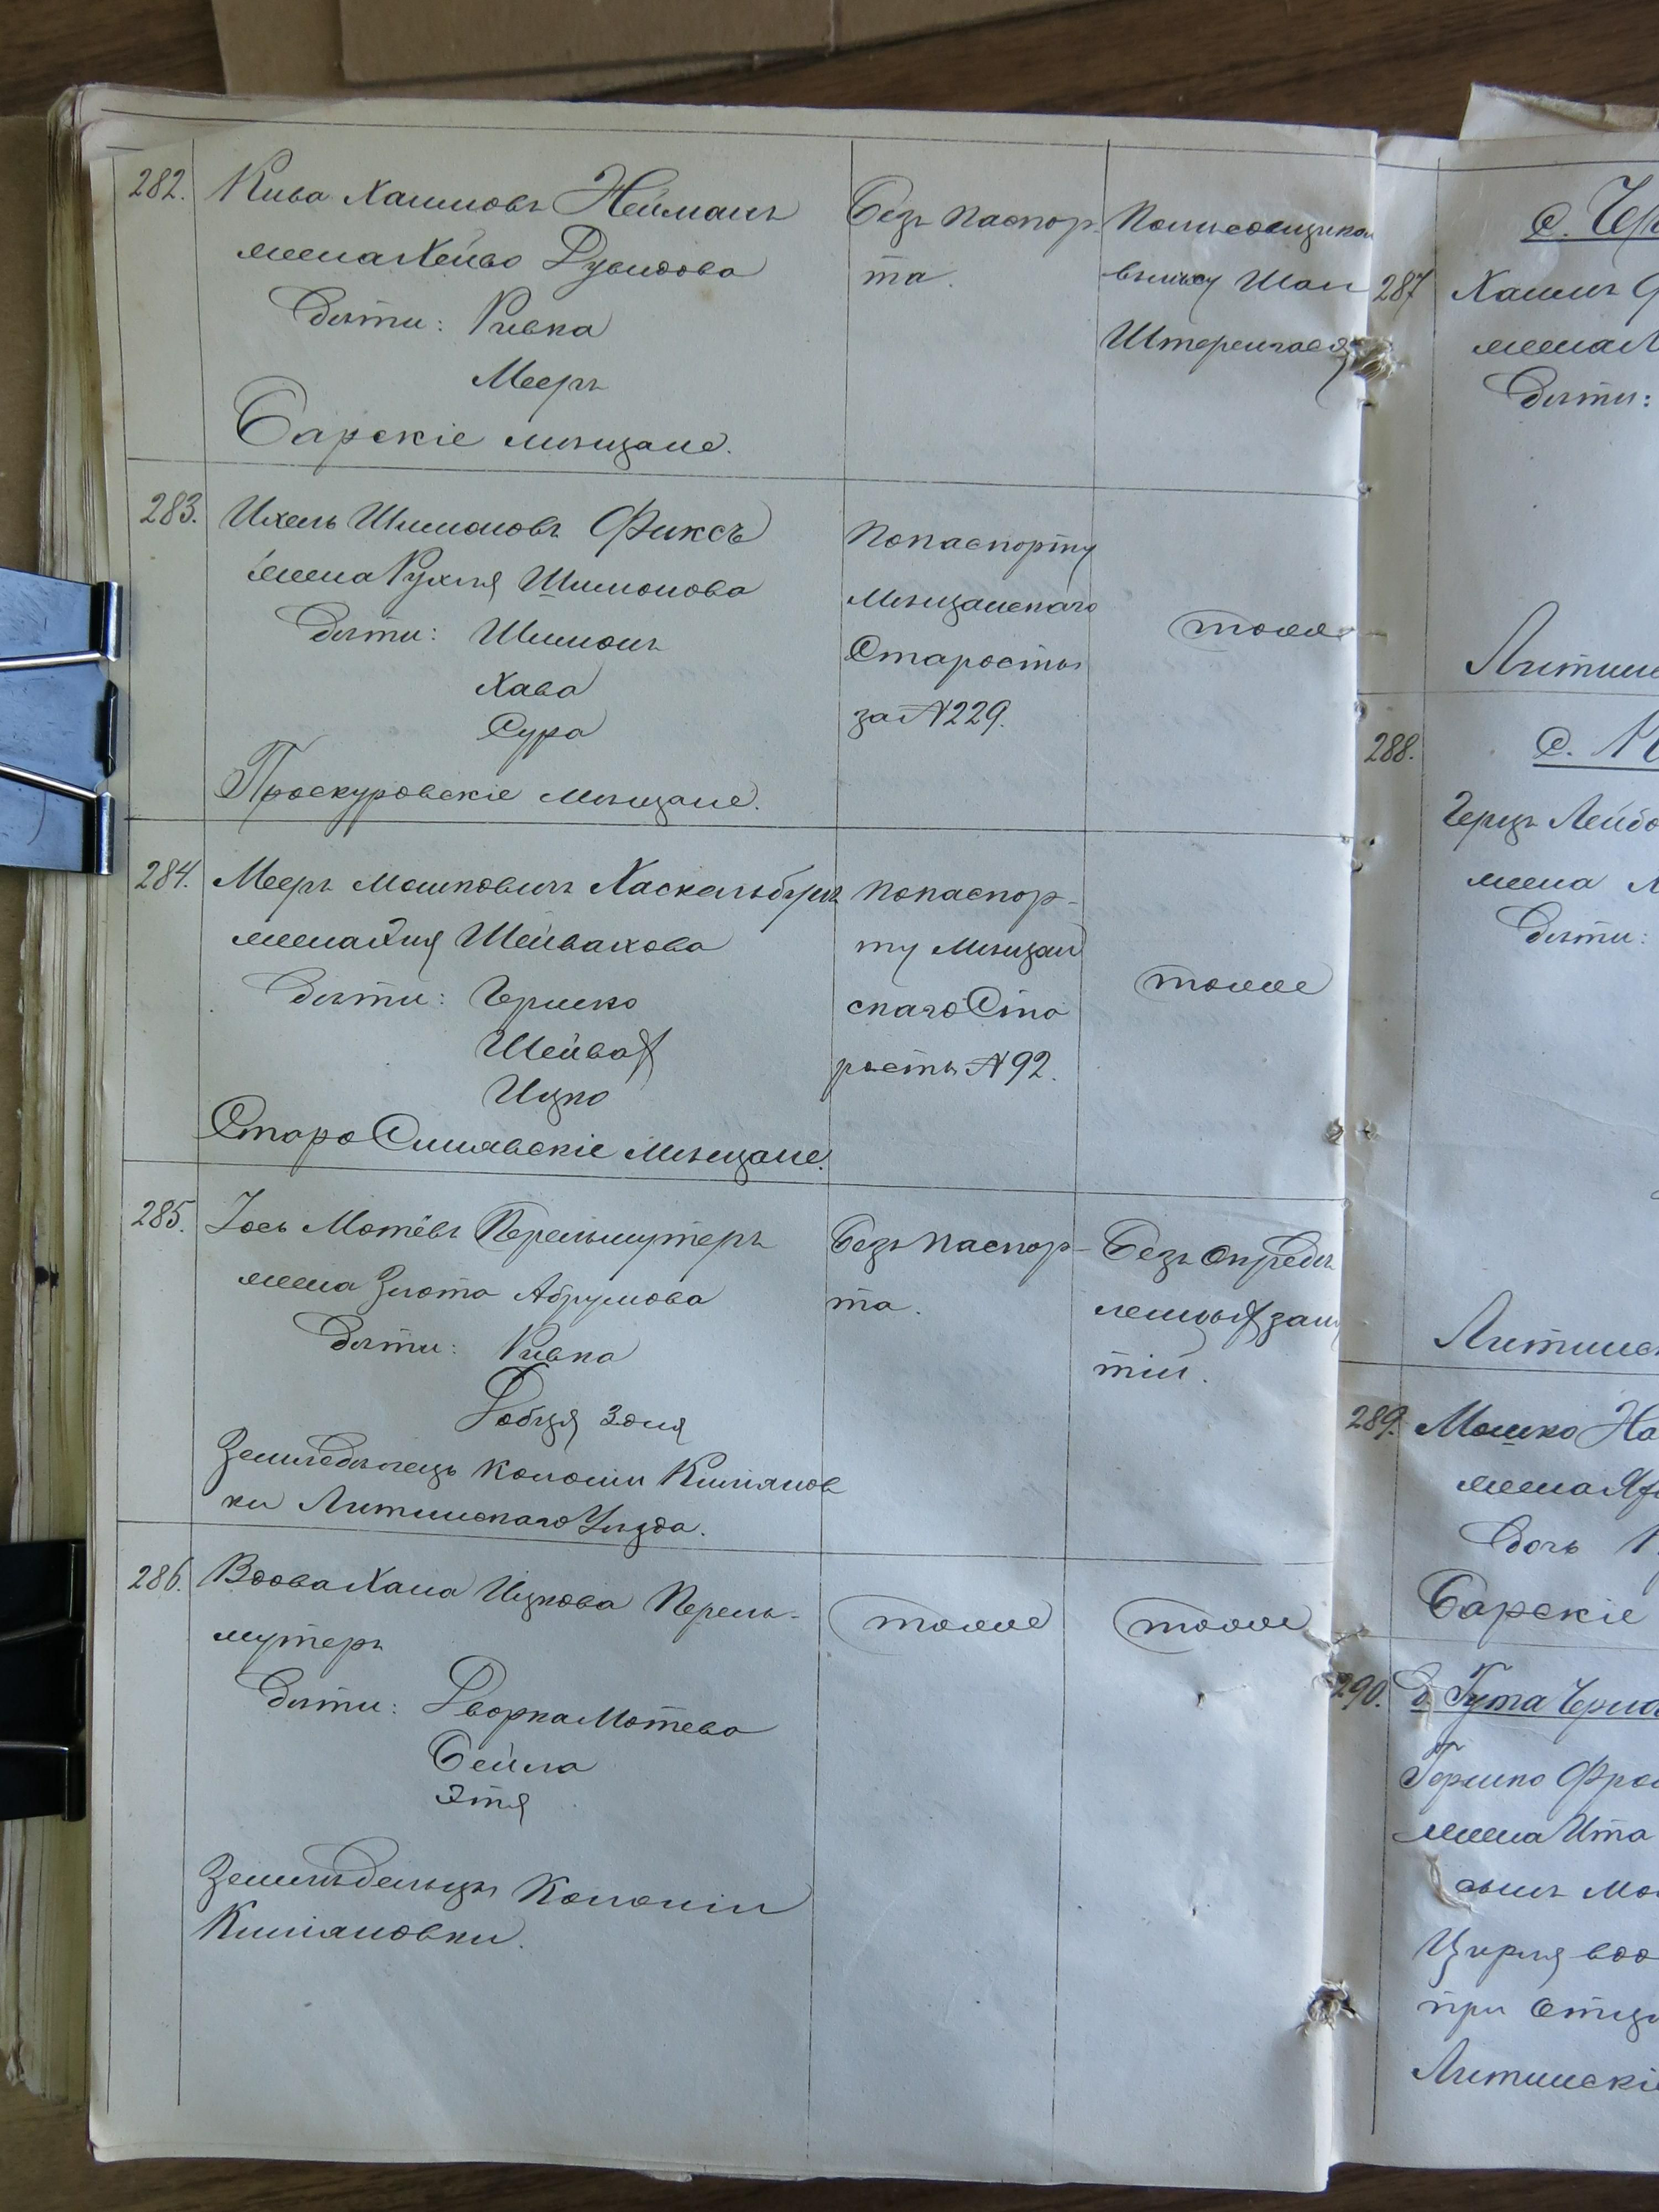 282. Кива Хаимовъ Нейманъ
жена Хейво Дувидова
дѣти: Ривка
Мееръ
Барскіе мѣщане.
Безъ паспор-
та.
Шан
283. Ихель Шимоновъ Фиксъ
жена Рухля Шимонова
дѣти: Шимонъ
Хава
Сура
Проскуровскіе мѣщане.
По паспорту
Мѣщанскаго
Старосты
за №229.
тоже
284. Мееръ Мошковичъ Хаскельбергъ
жена Хая Шейвахова
дѣти: Гершко
Шейвах
Ицко
Старо Синявскіе Мѣщане.
по паспор-
ту Мѣщан
скаго Ста
росты №92.
тоже
285. Іось Мотёвъ Перельмутеръ
жена Злота Абрумова
дѣти: Ривка
Добця Зоня
Земледѣлецъ колоніи Кипіянов
ки Литинскаго Уѣзда.
Безъ паспор-
та.
Безъ опредѣ
ленныхъ заня
тій.
286. Вдова Хана Ицкова Перель-
мутеръ
дѣти: Дворка Мотева
Бейла
Этя
Земледѣльцы Колоніи
Кипіяновки.
тоже
тоже
с. Чер
287 Хаимъ
жена
дѣти:
Литинс
288. с.
Герцъ Лейбо
жена
дѣти:
Литинск
289. Мошко На
жена
дочь
Барскіе
290. д. Гута Черна
Гершко Фро
жена Ита
сынъ Мо
Цирля вдо
при отцѣ
Литинскіе